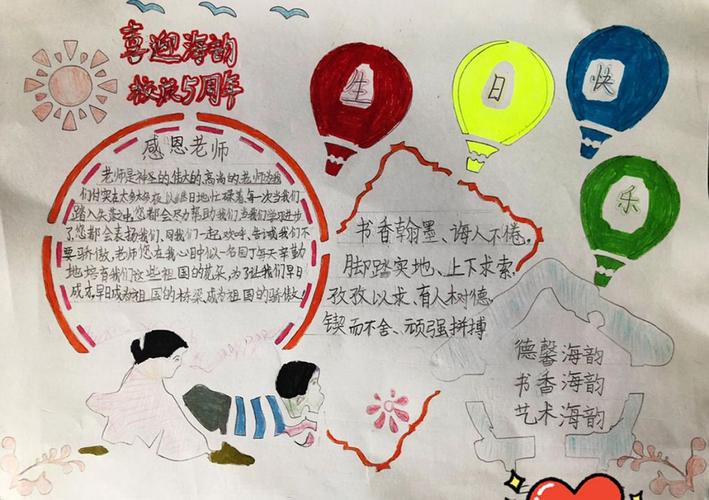 喜迎海韵
校庆5周年
生
日
快
乐
感恩老师
老师是神圣的伟大的高尚的老师
们日夜日地忙碌着每一次当我们
踏入您都会尽力帮助我们,当我们学习进步
了您都会表扬我们,同我们一起欢呼、告诫我们不
要骄傲。老师您在我心目中似一名园丁每天辛勤
地培育我们这些祖国的花朵。为了让我们早日
成才,早日成为祖国的栋梁,成为祖国的骄傲!
书香翰墨、诲人不倦。
脚踏实地、上下求索
孜孜以求、育人树德
锲而不舍、顽强拼搏
德馨海韵
书香海韵
艺术海韵